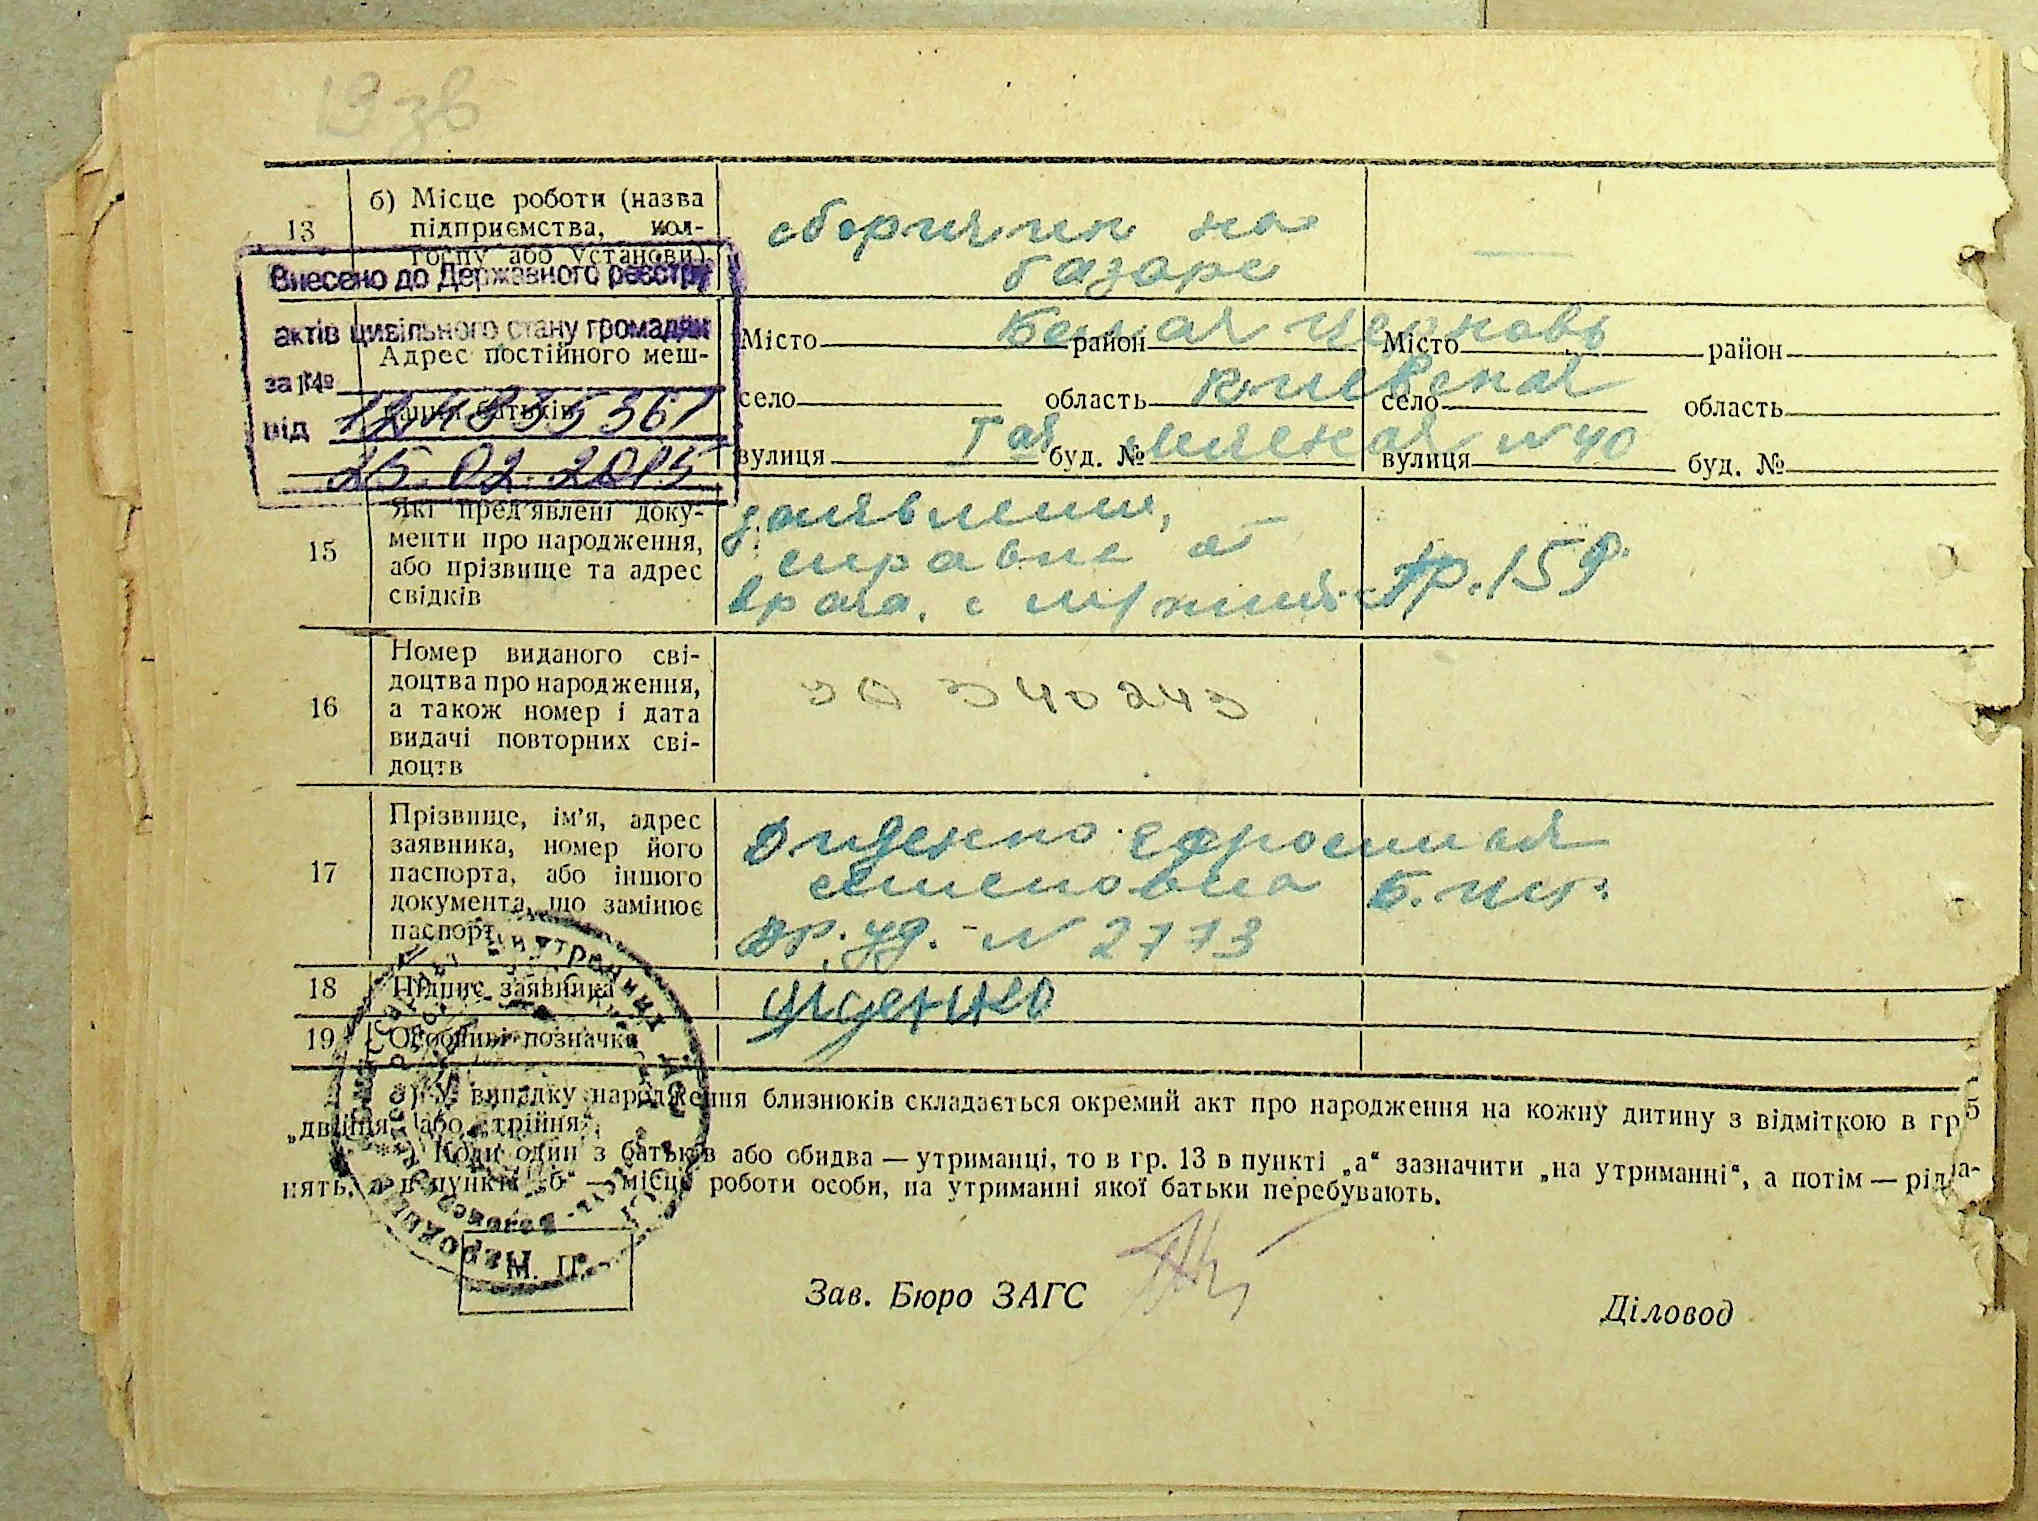 19 зв
13
б) Місце роботи (назва
підприємства, кол-
госпу або установи)
сборщик на
базаре
Внесено до Державного реєстру
актів цивільного стану громадян
за №
12483536
від
25.02.2015
Адрес постійного меш-
кання батьків
Місто район
Белая Церковь
село область
Киевская
вулиця буд. №
№ 40
Місто район
село область
вулиця буд. №
15
Які пред'явлені доку-
менти про народження,
або прізвище та адрес
свідків
заявление,
справка от
врача. с
16
Номер виданого сві-
доцтва про народження,
а також номер і дата
видачі повторних сві-
доцтв
340243
17
Прізвище, ім'я, адрес
заявника, номер його
паспорта, або іншого
документа, що замінює
паспорт
уд. - № 2773
18
Підпис заявника
19
Особливі позначки
*) У випадку народження близнюків складається окремий акт про народження на кожну дитину з відміткою в гр 5
„двійня“ або „трійня“.
Коли один з батьків або обидва — утриманці, то в гр. 13 в пункті „а“ зазначити „на утриманні“, а потім —
нять, а в пункті „б“ — місце роботи особи, на утриманні якої батьки перебувають.
М. П.
Зав. Бюро ЗАГС
Діловод